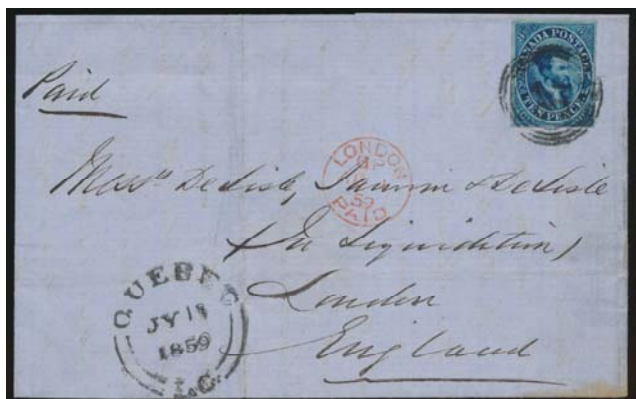 CANADA POSTAGE
TEN PENCE
Paid
LONDON
59
PAID
Messrs DeLisle, Janvrin & DeLisle
(In Liquidation)
London
England
QUEBEC
JY 18
1859
L.C.